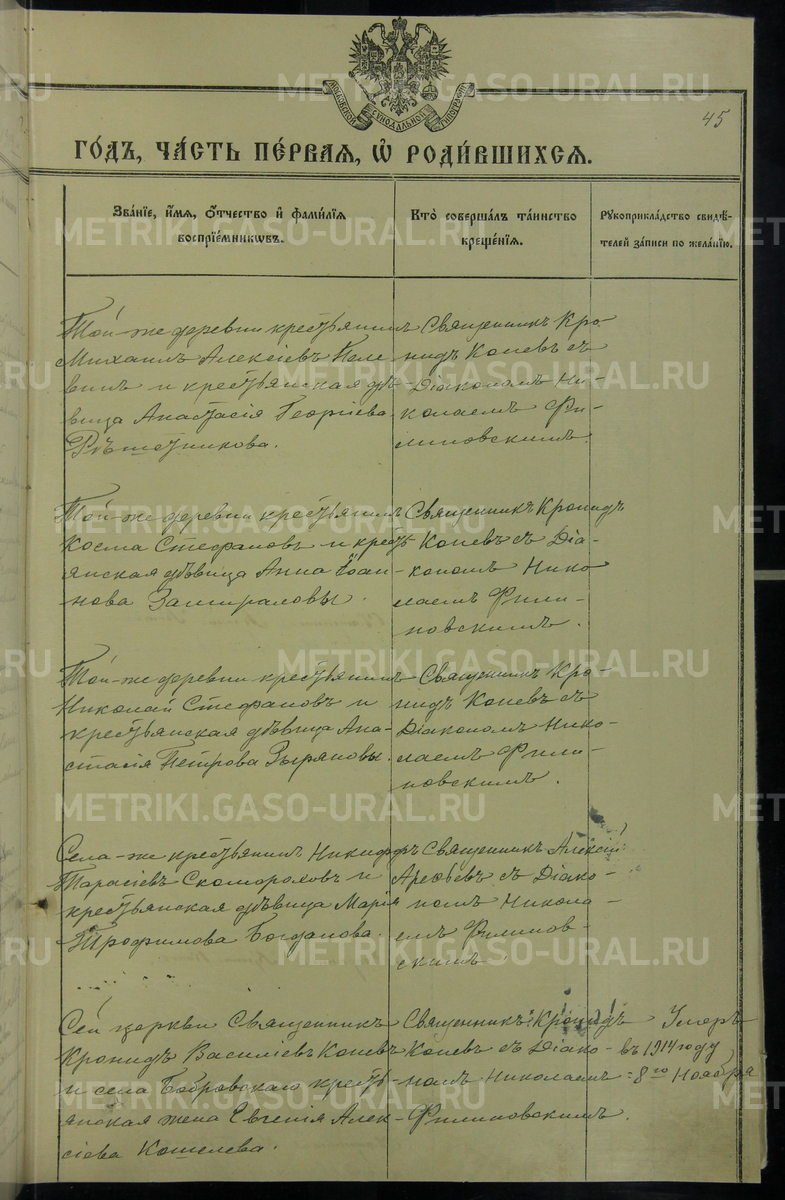 МОСКОВСКОЙ СѴНОДАЛЬНОЙ ТИПОГРАФІИ
45
ГО́ДЪ, ЧА́СТЬ ПЕ́РВАЯ, Ѽ РОДИ́ВШИХСЯ.
Зва́нїе, и́мя, ѻ҆́тчество и҆ фами́лїя
воспрїе́мникѡвъ.
Кто̀ соверша́лъ та́инство
креще́нїя.
Рꙋкоприкла́дство свидѣ́-
телей за́писи по жела́нїю.
Той-же деревни крестьянинъ
Михаилъ Алексіевъ Пеле
винъ и крестьянская дѣ-
вица Анастасія Георгіева
Рѣшетникова.
Священникъ Кро
нидъ Коневъ съ
Діакономъ Ни-
колаемъ Фи-
линовскимъ.
Той-же деревни крестьянинъ
Косма Стефановъ и кресть
янская дѣвица Анна Іоан-
нова Замираловы.
Священникъ Кронидъ
Коневъ съ Діа-
кономъ Нико
лаемъ Фили-
новскимъ.
Той-же деревни крестьянинъ
Николай Стефановъ и
крестьянская дѣвица Ана-
стасія Петрова Зыряновы.
Священникъ Кро-
нидъ Коневъ съ
Діакономъ Нико-
лаемъ Фили-
новскимъ.
Села-же крестьянинъ Никифоръ
Тарасіевъ Скомороховъ и
крестьянская дѣвица Марія
Трофимова Богданова.
Священникъ Алексій
Арефьевъ съ Діако-
номъ Никола-
емъ Филинов-
скимъ.
Сей церкви Священникъ
Кронидъ Василіевъ Коневъ
и села Бобровскаго кресть-
янская жена Евгенія Алек-
сіева Кошелева.
Священникъ Кронидъ
Коневъ съ Діако-
номъ Николаемъ
Филиновскимъ.
Умеръ
въ 1914 году
8го Ноября
METRIKI.GASO-URAL.RU